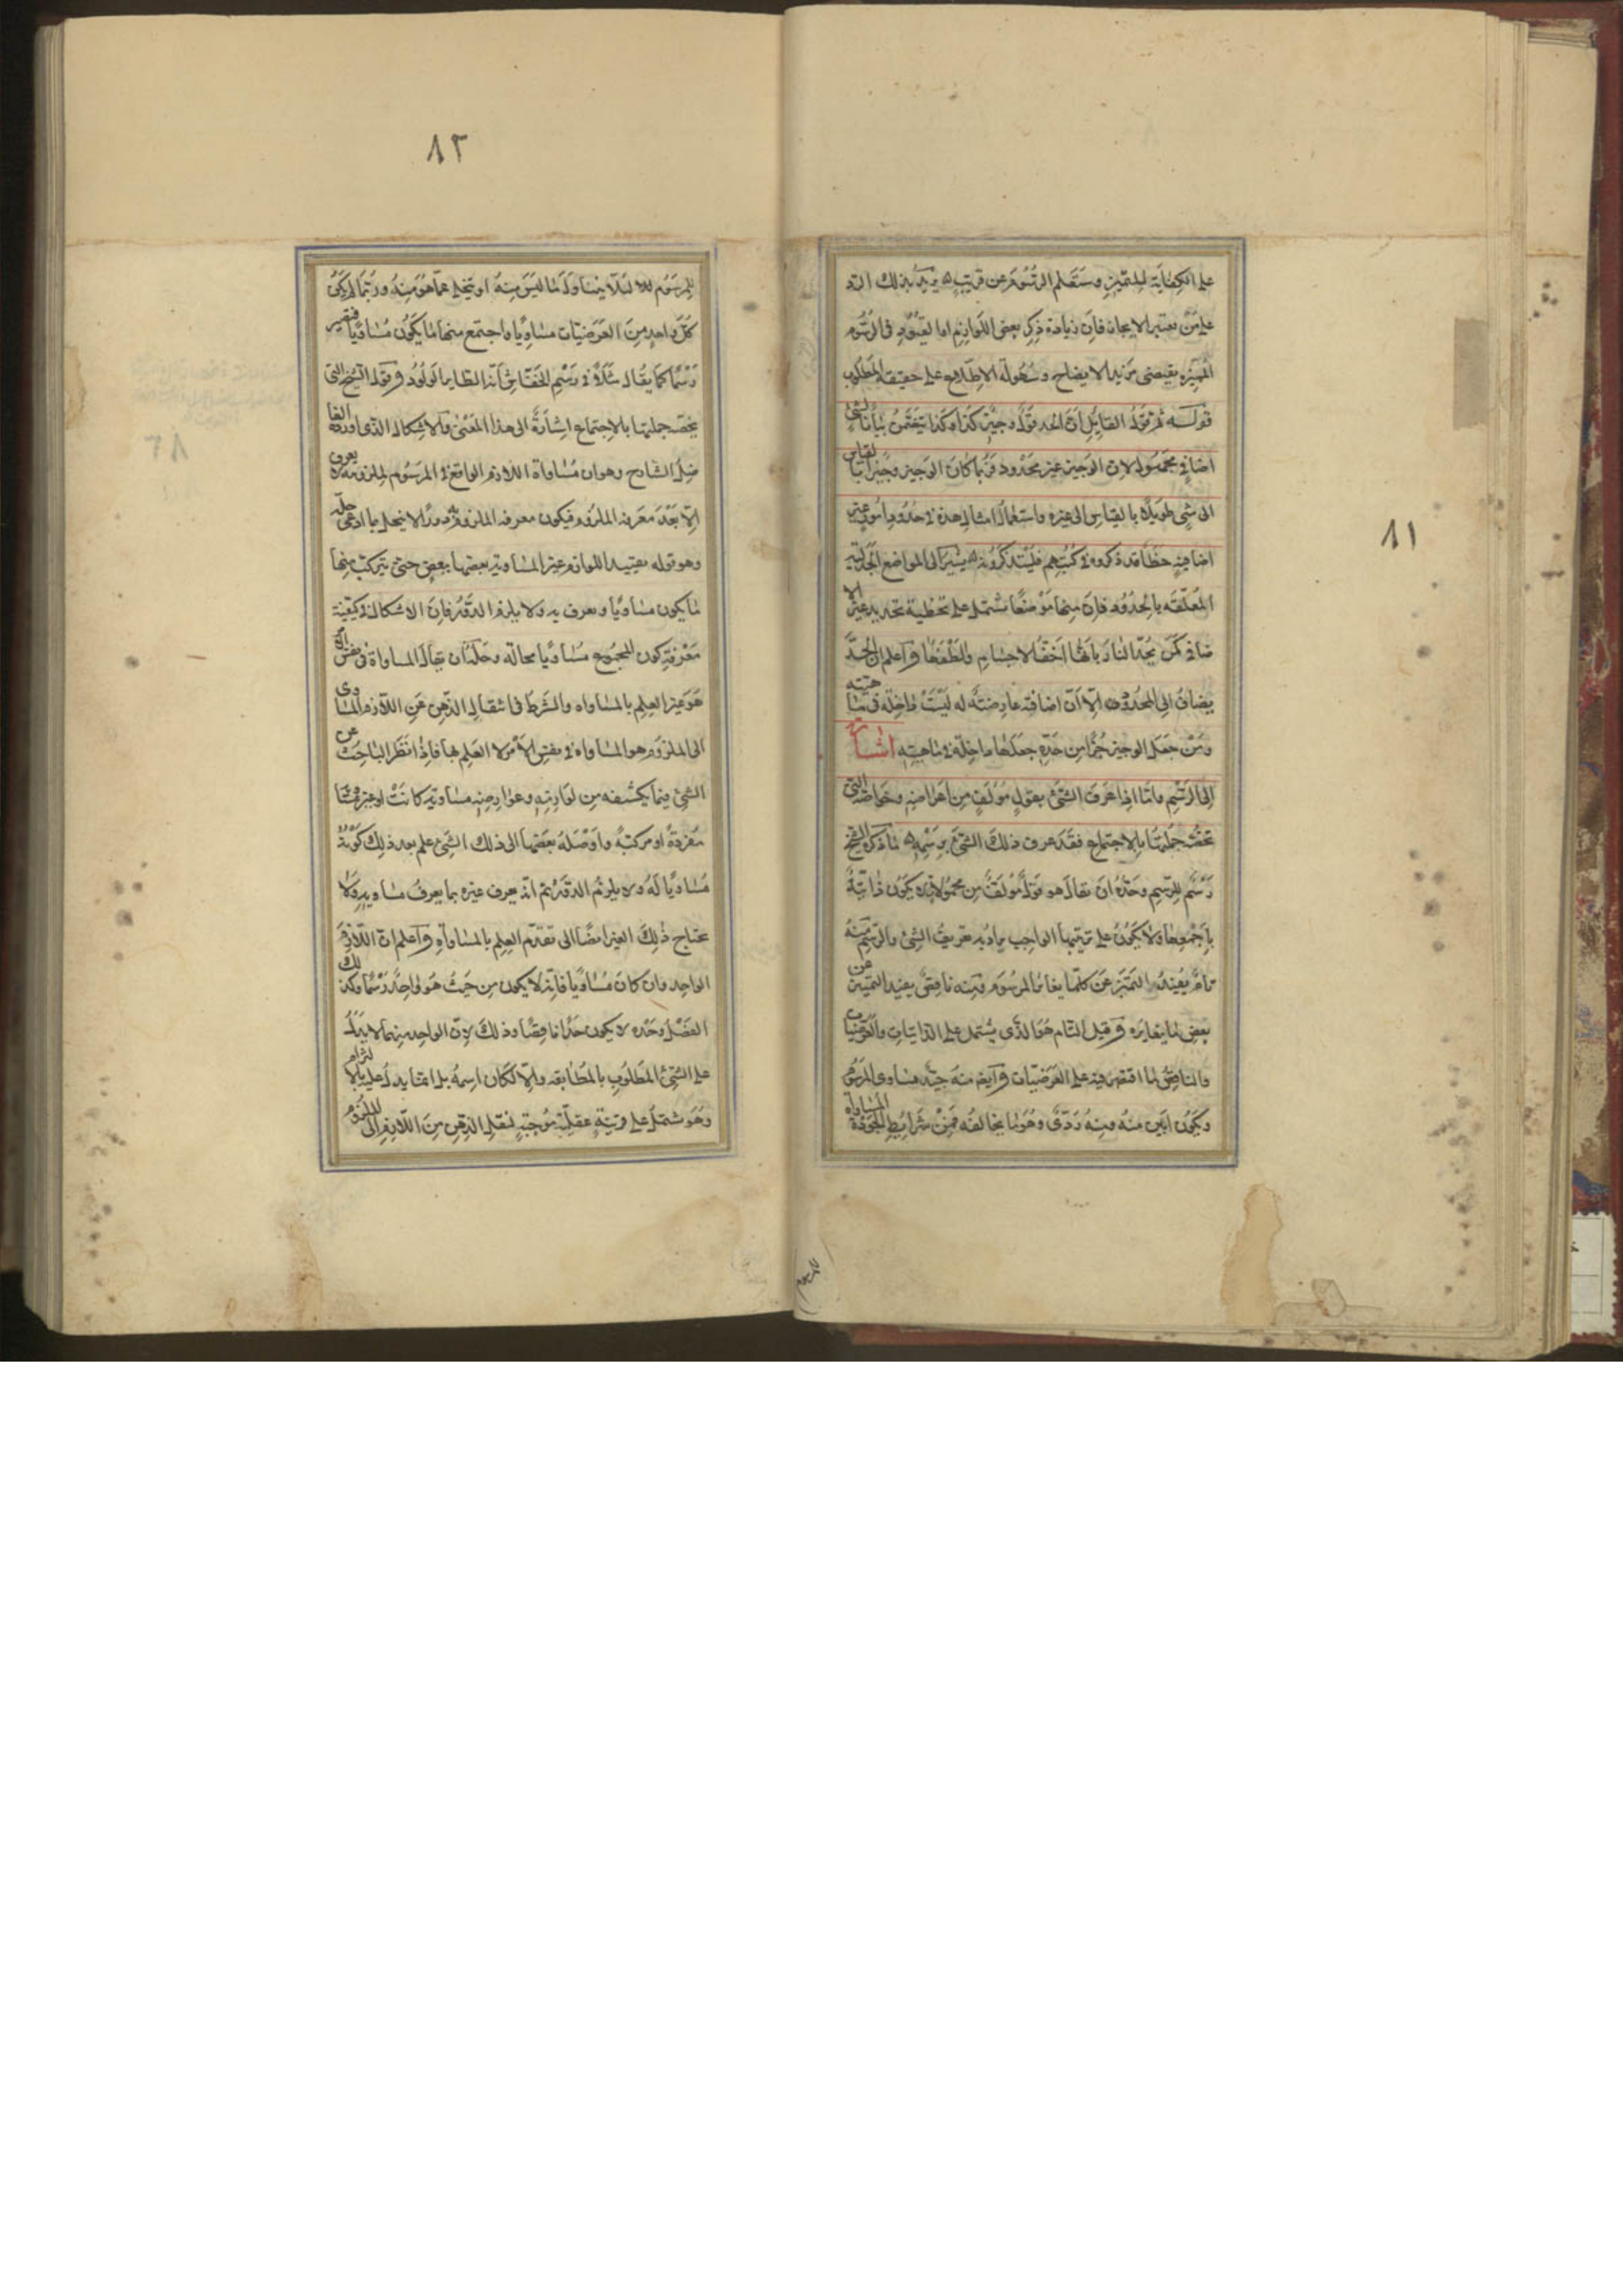 ٨١
على الكفاية للتميز وستعلم الرسوم عن قريب يريد بذلك الرد
على من يعتبر الايجاز فان زيادة ذكر بعض اللوازم اما لقيود في الرسوم
المميزه يقتضى مزيد الايضاح وسهولة الاطلاع على حقيقة المطلوب
قوله ثم قول القايل ان الحد قول وجيز كذا وكذا يتضمن بيانا لشئ
اضافي مجهول لان الوجيز غير محدود فربما كان الشئ وجيزا بالقياس
الى شئ طويلا بالقياس الى غيره واستعمال امثال هذه في حدود امور غير
اضافية خطأ قد ذكروه في كتبهم فليتذكروه يشير الى المواضع الجدلية
المتعلقه بالحدود فان منها موضعا يشتمل على تخطية تحديد غير الا
ضافي كمن يحد النار بانها اخف الاجسام والطفها واعلم ان الحد
يضاف الى المحدود الا ان اضافته عارضة له ليست داخلة في ماهيته
ومن جعل الوجيز جزءا من حده جعلها داخلة في ماهيته اشارة
الى الرسم واما اذا عرف الشئ بقول مؤلف من اعراضه وخواصه التي
تخصه جملتها بالاجتماع فقد عرف ذلك الشئ برسمه ما ذكره الشيخ
رسم للرسم وحده ان يقال هو قول مؤلف من محمولات لا يكون ذاتية
باجمعها ولا يكون على ترتيبها الواجب يراد به تعريف الشئ والرسم منه
تام يفيد التميز عن كلما يغاير المرسوم ومنه ناقص يفيد التميز عن
بعض ما يغايره وقيل التام هو الذي يشتمل على الذاتيات والعرضيات
والناقص ما اقتصر فيه على العرضيات وايضا منه جيد مساوى المرسوم
ويكون ابين منه ومنه ردئ وهو ما يخالفه فمن شرايط الجودة المساواة
للمرسوم
٨٢
للمرسوم لئلا يتناول ما ليس منه او يتخلى عما هو منه وربما لم يكن
كل واحد من العرضيات مساويا واجتمع منها ما يكون مساويا فيصير
رسما كما يقال مثلا في رسم الخفاش انه الطاير الولود وقول الشيخ التي
يخصه جملتها بالاجتماع اشارة الى هذا المعنى والاشكال الذي اورده الفا
ضل الشارح وهو ان مساواة اللازم الواقع في المرسوم لملزومه لا يعرف
الا بعد معرفة الملزوم فيكون معرفة الملزوم به دورا لا ينحل بما ادعى حله
وهو قوله بتقييد اللوازم غير المساوية بعضها ببعض حتى يتركب منها
ما يكون مساويا ويعرف به ولا يلزم الدور فان الاشكال في كيفية
معرفة كون المجموع مساويا بحاله وحله ان يقال المساواة في نفس الامر
هو غير العلم بالمساواه والشرط في انتقال الذهن عن اللازم المساوى
الى الملزوم هو المساواة في نفس الامر لا العلم بها فاذا نظر الباحث عن
الشئ فيما يكتنفه من لوازمه وعوارضه مساوية كانت او غير مساوية
مفردة او مركبة واوصله بعضها الى ذلك الشئ علم بعد ذلك كونه
مساويا له ولا يلزم الدور ثم انه يعرف غيره بما يعرف مساويه ولا
يحتاج ذلك الغير ايضا الى تقدم العلم بالمساواة واعلم ان اللازم
الواحد وان كان مساويا فانه لا يكون من حيث هو واحد رسما وكذلك
الفصل وحده لا يكون حدا ناقصا وذلك لان الواحد منهما لا يدل
على الشئ المطلوب بالمطابقه والا لكان اسمه بل انما يدل عليه بالالتزام
وهو يشتمل على قرينة عقلية موجبة لنقل الذهن من اللازم الى الملزوم